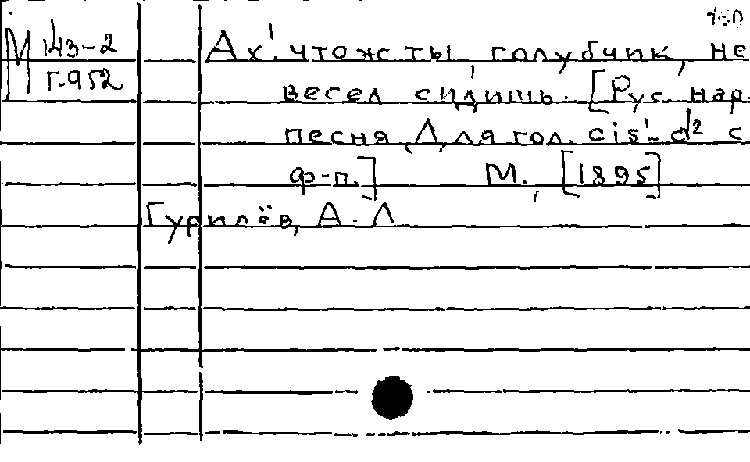 М 143-2
Г-952
Ах! что ж ты, голубчик, не
весел сидишь. [Рус. нар.
песня. Для гол. cis¹-d² с
ф-п.] М., [1895]
Гурилёв, А. Л